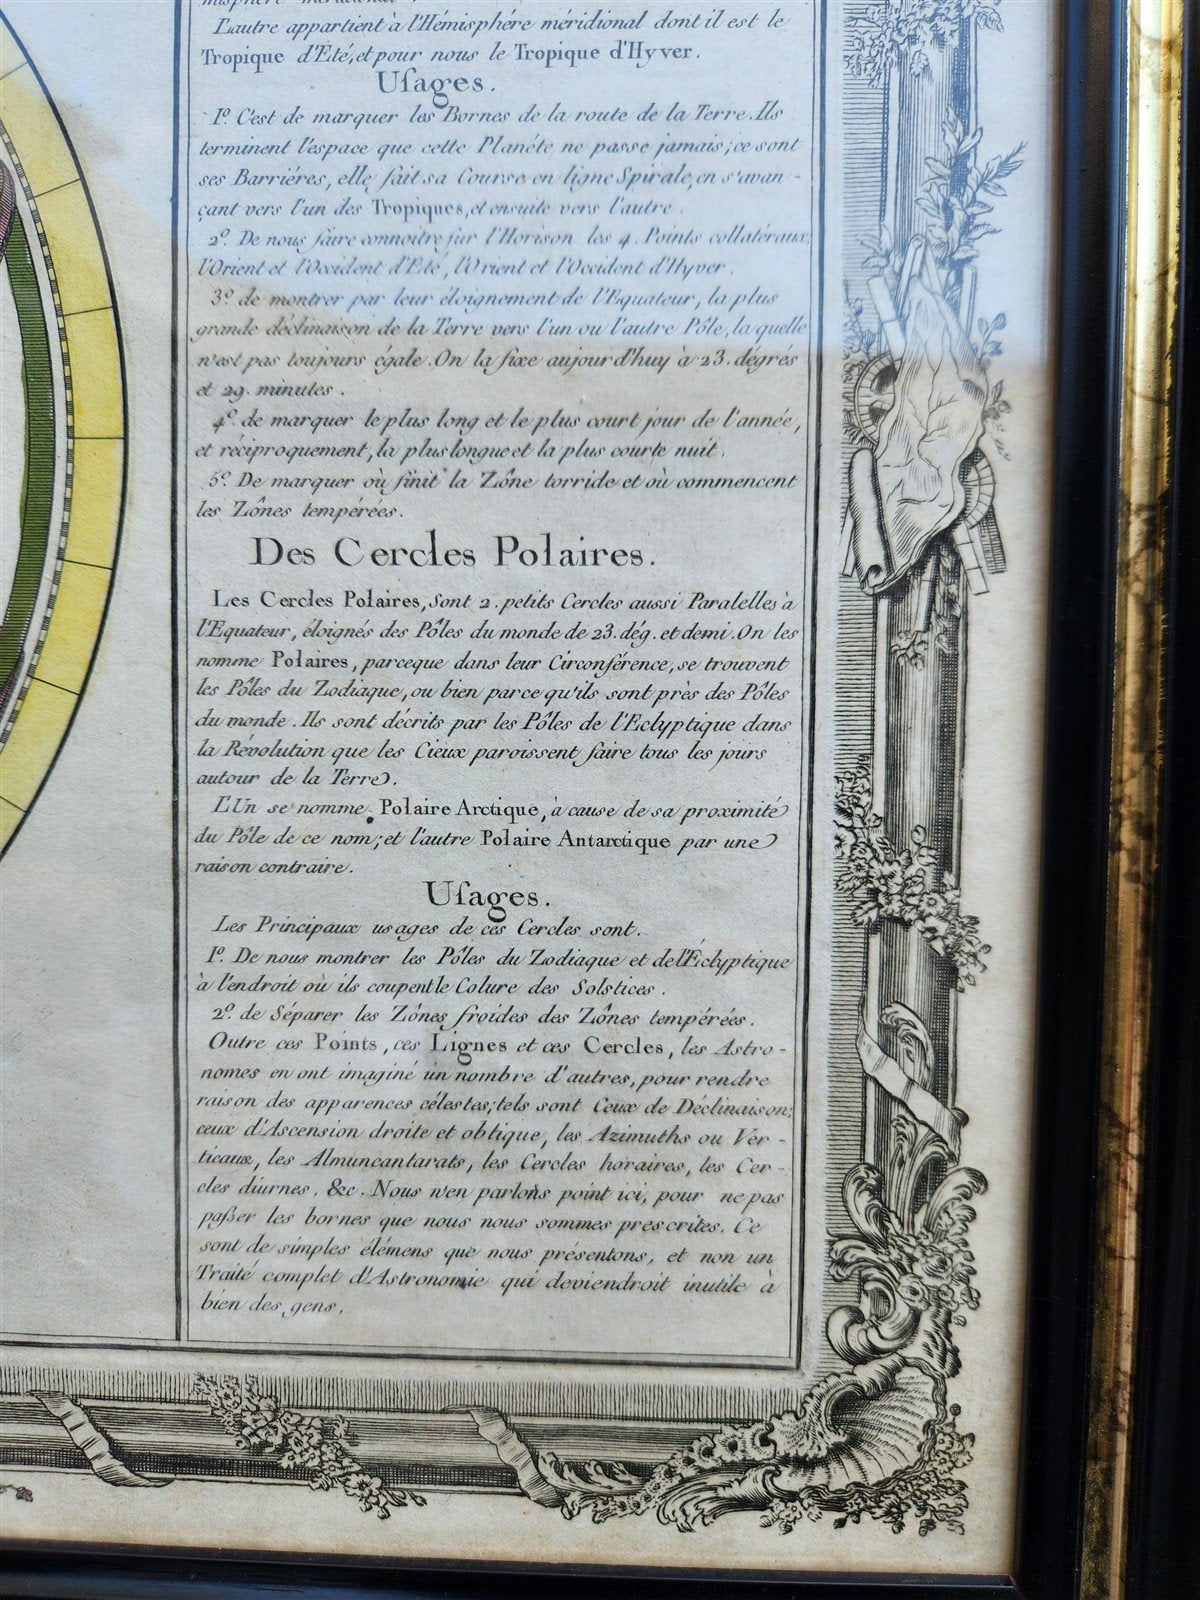 misphére méridional.
L'autre appartient à l'Hémisphére méridional dont il est le
Tropique d'Eté, et pour nous le Tropique d'Hyver.
Uſages.
1º. C'est de marquer les Bornes de la route de la Terre. Ils
terminent l'espace que cette Planéte ne passe jamais; ce sont
ses Barriéres, elle fait sa Course en ligne Spirale, en s'avan-
çant vers l'un des Tropiques, et ensuite vers l'autre.
2º. De nous faire connoitre ſur l'Horison les 4. Points collatéraux,
l'Orient et l'Occident d'Eté, l'Orient et l'Occident d'Hyver.
3º. de montrer par leur éloignement de l'Equateur, la plus
grande déclinaison de la Terre vers l'un ou l'autre Pôle, la quelle
n'est pas toujours égale. On la fixe aujourd'huy à 23. degrés
et 29. minutes.
4º. de marquer le plus long et le plus court jour de l'année,
et réciproquement, la plus longue et la plus courte nuit.
5º. De marquer où finit la Zône torride et où commencent
les Zônes tempérées.
Des Cercles Polaires.
Les Cercles Polaires, sont 2. petits Cercles aussi Paralelles à
l'Equateur, éloignés des Pôles du monde de 23. dég. et demi. On les
nomme Polaires, parceque dans leur Circonférence, se trouvent
les Pôles du Zodiaque, ou bien parce qu'ils sont près des Pôles
du monde. Ils sont décrits par les Pôles de l'Eclyptique dans
la Révolution que les Cieux paroissent faire tous les jours
autour de la Terre.
L'Un se nomme Polaire Arctique, à cause de sa proximité
du Pôle de ce nom; et l'autre Polaire Antarctique par une
raison contraire.
Uſages.
Les Principaux usages de ces Cercles sont.
1º. De nous montrer les Pôles du Zodiaque et de l'Éclyptique
à l'endroit où ils coupent le Colure des Solstices.
2º. de Séparer les Zônes froides des Zônes tempérées.
Outre ces Points, ces Lignes et ces Cercles, les Astro-
nomes en ont imaginé un nombre d'autres, pour rendre
raison des apparences célestes; tels sont Ceux de Déclinaison;
ceux d'Ascension droite et oblique, les Azimuths ou Ver-
ticaux, les Almuncantarats, les Cercles horaires, les Cer-
cles diurnes. &c. Nous n'en parlons point ici, pour ne pas
paßer les bornes que nous nous sommes prescrites. Ce
sont de simples élémens que nous présentons, et non un
Traité complet d'Astronomie qui deviendroit inutile à
bien des gens.